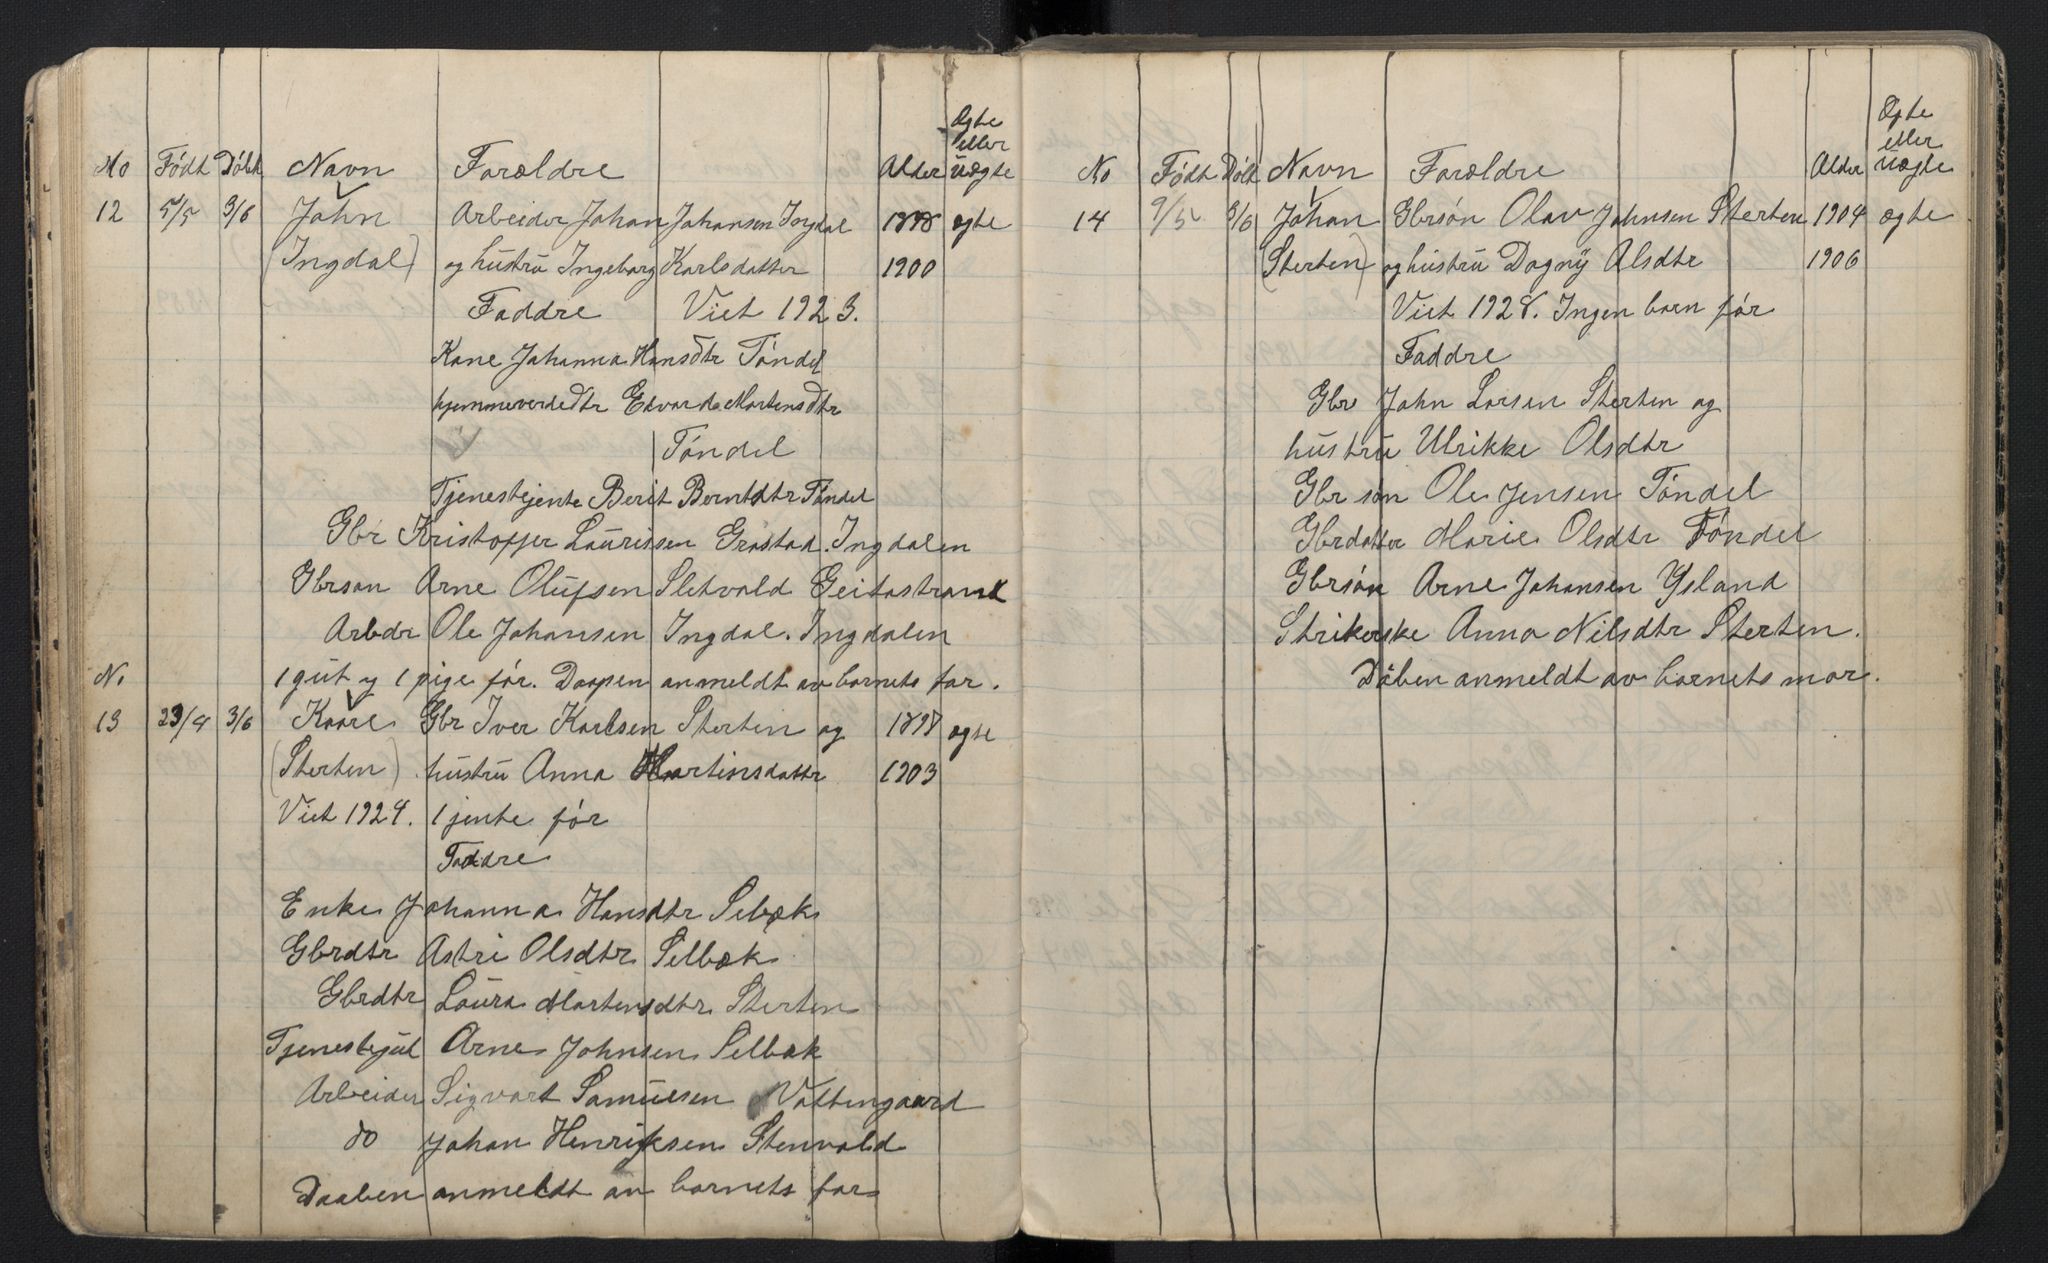 Ægte
eller
No Født Døbt Navn Forældre Alder Uægte
12 5/5 3/6 John Arbeider Johan Johansen Ingdal 1898 egte
(Ingdal) og hustru Ingeborg Karlsdatter 1900
Faddre Viet 1923.
Kone Johanna Hansdtr Tøndel
hjemmeverdedtr Edvarda Martensdtr
Tøndel
Tjenestejente Berit Berntdtr Tøndel
Gbr Kristoffer Laurissen Grøstad. Ingdalen
Gbrsøn Arne Olufsen Sletvold Geitastrand
Arbdr Ole Johansen Ingdal. Ingdalen
1 gut og 1 pige før. Daapen anmeldt av barnets far.
No
13 23/4 3/6 Kaare Gbr Iver Karlsen Sterten og 1898 egte
(Sterten) hustru Anna Martinsdattr 1903
Viet 1924. 1 jente før
Faddre
Enke Johanna Hansdtr Selbæk
Gbrdtr Astri Olsdtr Selbæk
Gbrdtr Laura Martensdtr Sterten
Tjenestegut Arne Johnsen Selbæk
Arbeider Sigvart Samuelsen Vattengaard
do Johan Henriksen Stenvold
Daaben anmeldt av barnets far
Ægte
eller
No Født Døbt Navn Forældre Alder Uægte
14 9/5 3/6 Johan Gbrsøn Olav Johnsen Sterten 1904 ægte
(Sterten) og hustru Dagny Alsdtr 1906
Viet 1928. Ingen barn før
Faddre
Gbr John Larsen Sterten og
hustru Ulrikke Olsdtr
Gbr søn Ole Jensen Tøndel
Gbrdatter Marie Olsdtr Tøndel
Gbrsøn Arne Johansen Ysland
Strikerske Anna Nilsdtr Sterten.
Dåben anmeldt av barnets mor.